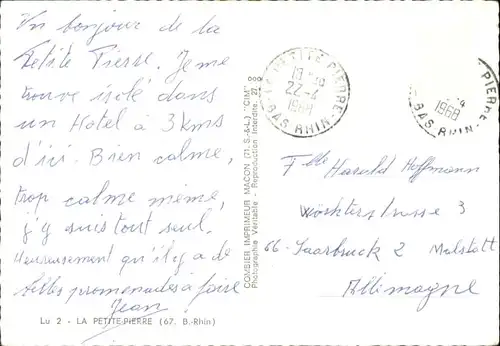 Un bonjour de la
Petite Pierre. Je me
trouve isolé dans
un Hotel à 3 kms
d'ici. Bien calme,
trop calme même,
j'y suis tout seul.
Heureusement qu'il y a de
belles promenades à faire
Jean
Lu 2 - LA PETITE-PIERRE (67. B.-Rhin)
COMBIER IMPRIMEUR MACON (71. S.-&-L.) "CIM"
Photographie Véritable - Reproduction Interdite.
LA PETITE-PIERRE
22-4
1968
BAS RHIN
PIERRE
1968
BAS RHIN
Harold Hoffmann
3
66-Saarbruck 2 Malstatt
Allemagne